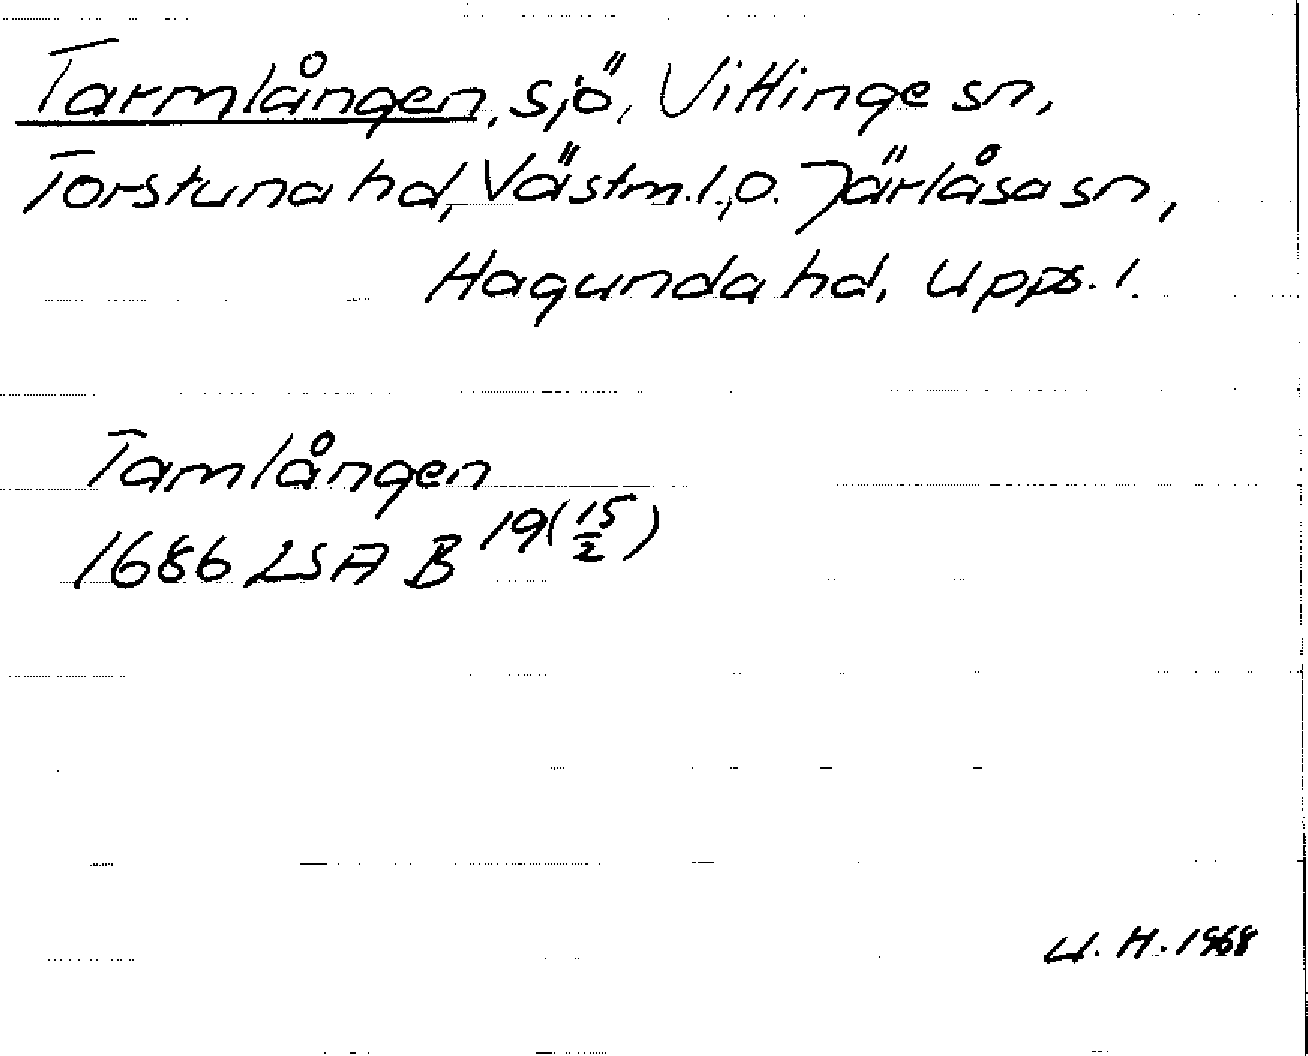 Tarmlången, sjö, Vittinge sn,
Torstuna hd, Västm. l., o. Järlåsa sn,
Hagunda hd, Upps. l.
Tamlången
1686 LSA B 19(15/2)
U. H. 1968